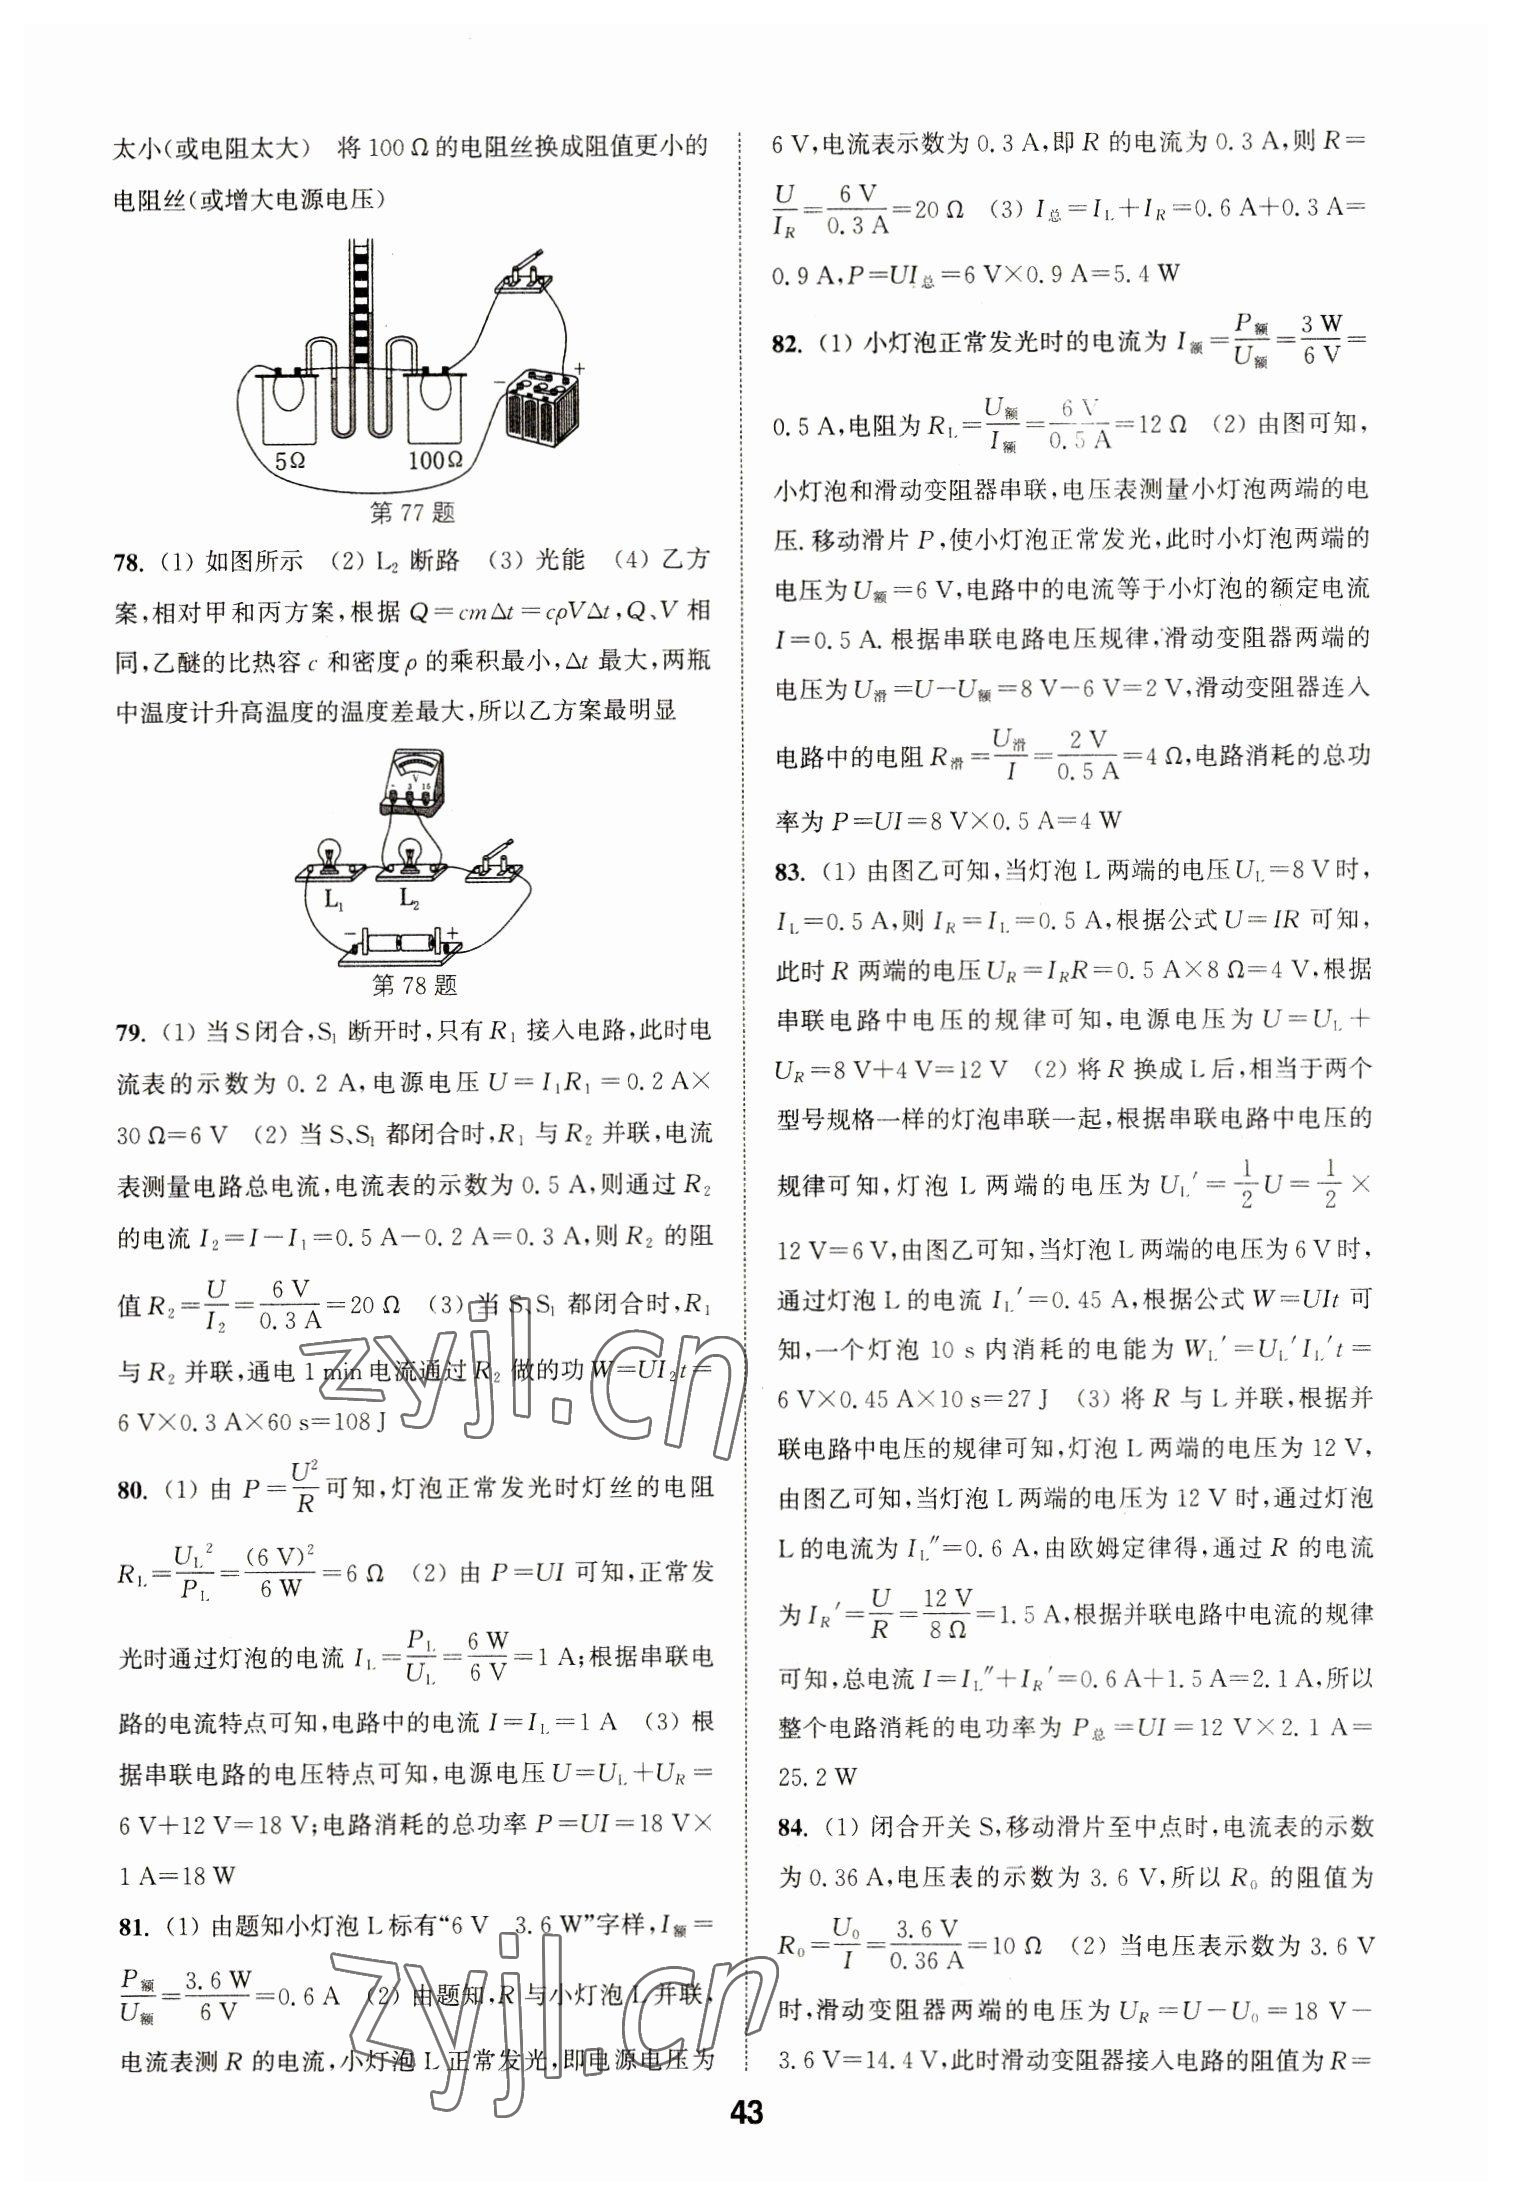 太小(或电阻太大) 将 100 Ω 的电阻丝换成阻值更小的
电阻丝(或增大电源电压)
− +
5Ω 100Ω
第 77 题
78. (1) 如图所示 (2) L₂ 断路 (3) 光能 (4) 乙方
案,相对甲和丙方案,根据 Q=cmΔt=cρVΔt,Q、V 相
同,乙醚的比热容 c 和密度 ρ 的乘积最小,Δt 最大,两瓶
中温度计升高温度的温度差最大,所以乙方案最明显
V
- 3 15
L₁ L₂
− +
第 78 题
79. (1) 当 S 闭合,S₁ 断开时,只有 R₁ 接入电路,此时电
流表的示数为 0.2 A,电源电压 U=I₁R₁=0.2 A×
30 Ω=6 V (2) 当 S、S₁ 都闭合时,R₁ 与 R₂ 并联,电流
表测量电路总电流,电流表的示数为 0.5 A,则通过 R₂
的电流 I₂=I−I₁=0.5 A−0.2 A=0.3 A,则 R₂ 的阻
值 R₂=U/I₂=6 V/0.3 A=20 Ω (3) 当 S、S₁ 都闭合时,R₁
与 R₂ 并联,通电 1 min 电流通过 R₂ 做的功 W=UI₂t=
6 V×0.3 A×60 s=108 J
80. (1) 由 P=U²/R 可知,灯泡正常发光时灯丝的电阻
R_L=U_L²/P_L=(6 V)²/6 W=6 Ω (2) 由 P=UI 可知,正常发
光时通过灯泡的电流 I_L=P_L/U_L=6 W/6 V=1 A;根据串联电
路的电流特点可知,电路中的电流 I=I_L=1 A (3) 根
据串联电路的电压特点可知,电源电压 U=U_L+U_R=
6 V+12 V=18 V;电路消耗的总功率 P=UI=18 V×
1 A=18 W
81. (1) 由题知小灯泡 L 标有“6 V 3.6 W”字样,I额=
P额/U额=3.6 W/6 V=0.6 A (2) 由题知,R 与小灯泡 L 并联,
电流表测 R 的电流,小灯泡 L 正常发光,即电源电压为
6 V,电流表示数为 0.3 A,即 R 的电流为 0.3 A,则 R=
U/I_R=6 V/0.3 A=20 Ω (3) I总=I_L+I_R=0.6 A+0.3 A=
0.9 A,P=UI总=6 V×0.9 A=5.4 W
82. (1) 小灯泡正常发光时的电流为 I额=P额/U额=3 W/6 V=
0.5 A,电阻为 R_L=U额/I额=6 V/0.5 A=12 Ω (2) 由图可知,
小灯泡和滑动变阻器串联,电压表测量小灯泡两端的电
压.移动滑片 P,使小灯泡正常发光,此时小灯泡两端的
电压为 U额=6 V,电路中的电流等于小灯泡的额定电流
I=0.5 A.根据串联电路电压规律,滑动变阻器两端的
电压为 U滑=U−U额=8 V−6 V=2 V,滑动变阻器连入
电路中的电阻 R滑=U滑/I=2 V/0.5 A=4 Ω,电路消耗的总功
率为 P=UI=8 V×0.5 A=4 W
83. (1) 由图乙可知,当灯泡 L 两端的电压 U_L=8 V 时,
I_L=0.5 A,则 I_R=I_L=0.5 A,根据公式 U=IR 可知,
此时 R 两端的电压 U_R=I_RR=0.5 A×8 Ω=4 V,根据
串联电路中电压的规律可知,电源电压为 U=U_L+
U_R=8 V+4 V=12 V (2) 将 R 换成 L 后,相当于两个
型号规格一样的灯泡串联一起,根据串联电路中电压的
规律可知,灯泡 L 两端的电压为 U_L′=1/2U=1/2×
12 V=6 V,由图乙可知,当灯泡 L 两端的电压为 6 V 时,
通过灯泡 L 的电流 I_L′=0.45 A,根据公式 W=UIt 可
知,一个灯泡 10 s 内消耗的电能为 W_L′=U_L′I_L′t=
6 V×0.45 A×10 s=27 J (3) 将 R 与 L 并联,根据并
联电路中电压的规律可知,灯泡 L 两端的电压为 12 V,
由图乙可知,当灯泡 L 两端的电压为 12 V 时,通过灯泡
L 的电流为 I_L″=0.6 A,由欧姆定律得,通过 R 的电流
为 I_R′=U/R=12 V/8 Ω=1.5 A,根据并联电路中电流的规律
可知,总电流 I=I_L″+I_R′=0.6 A+1.5 A=2.1 A,所以
整个电路消耗的电功率为 P总=UI=12 V×2.1 A=
25.2 W
84. (1) 闭合开关 S,移动滑片至中点时,电流表的示数
为 0.36 A,电压表的示数为 3.6 V,所以 R₀ 的阻值为
R₀=U₀/I=3.6 V/0.36 A=10 Ω (2) 当电压表示数为 3.6 V
时,滑动变阻器两端的电压为 U_R=U−U₀=18 V−
3.6 V=14.4 V,此时滑动变阻器接入电路的阻值为 R=
zyjl.cn
zyjl.cn
43